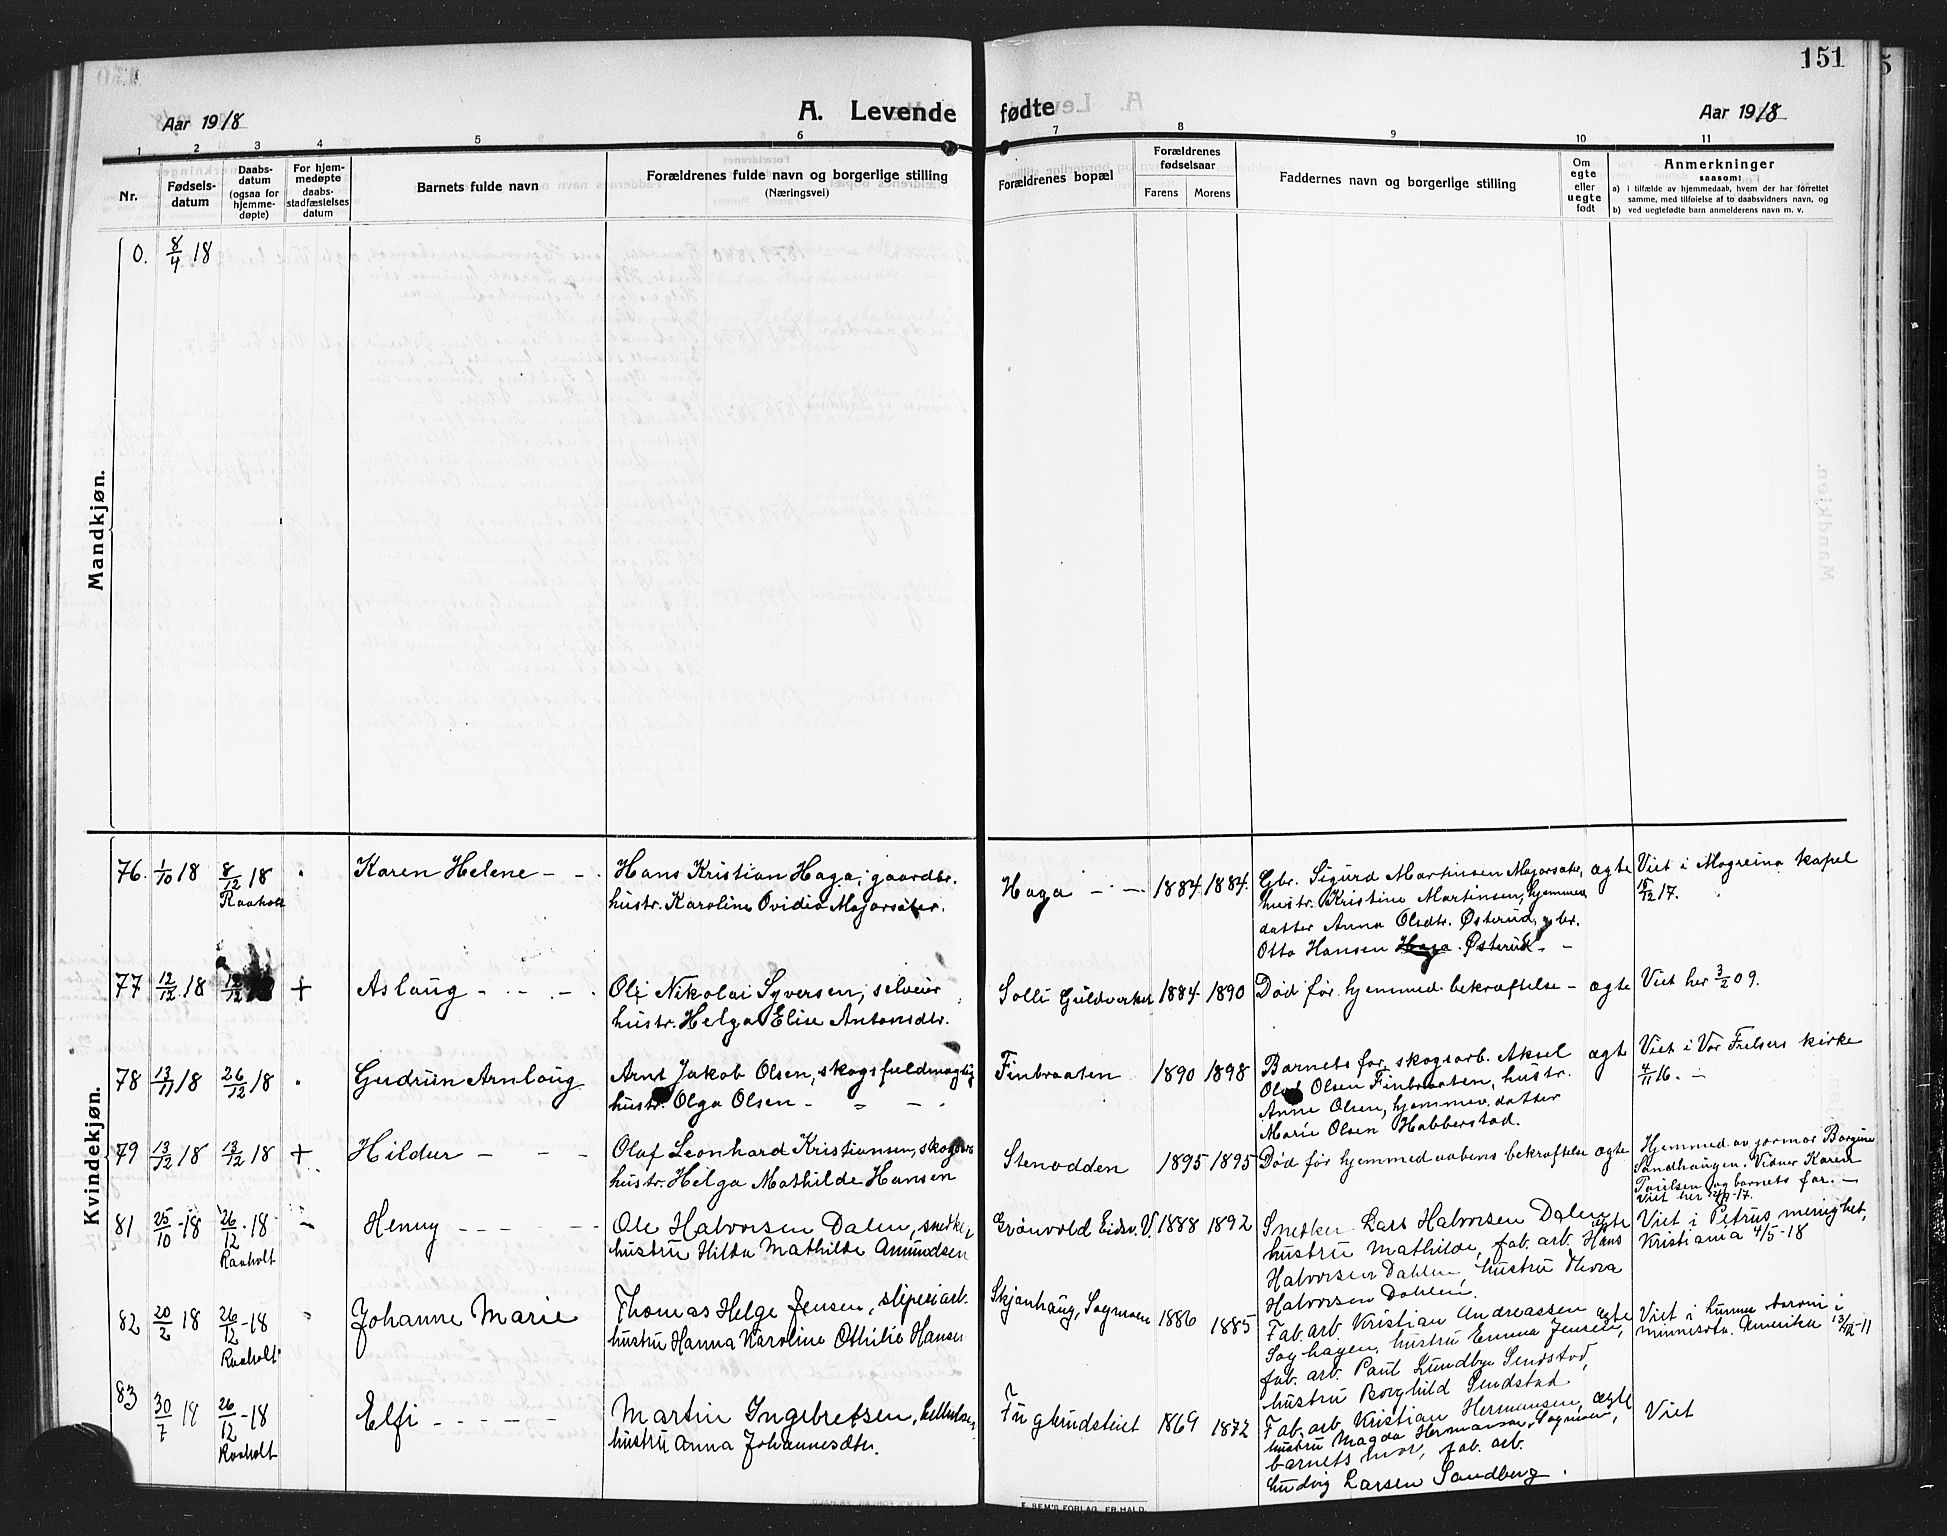 151
Aar 1918
A. Levende fødte
Aar 1918
1 2 3 4 5 6 7 8 9 10 11
Nr.
Fødsels-
datum
Daabs-
datum
(ogsaa for
hjemme-
døpte)
For hjem-
medøpte
daabs-
stadfæstelses
datum
Barnets fulde navn
Forældrenes fulde navn og borgerlige stilling
(Næringsvei)
Forældrenes bopæl
Forældrenes
fødselsaar
Farens
Morens
Faddernes navn og borgerlige stilling
Om
egte
eller
uegte
født
Anmerkninger
saasom:
a) i tilfælde av hjemmedaab, hvem der har forrettet
samme, med tilføielse av to daabsvidners navn, og
b) ved uegtefødte barn anmelderens navn m. v.
Mandkjøn.
0. 8/4 18
Kvindekjøn.
76. 1/10 18 8/12 18
Raaholt
Karen Helene - -
Hans Kristian Haga, gaardbr.
hustr. Karoline Ovidia Majorsäter.
Haga - - 1884 1884
Gbr. Sigurd Martinsen Majorsäter,
hustr. Kristine Martinsen, hjemmev.
datter Anna Olsdtr. Østerud, gbr.
Otto Hansen Haga Østerud - -
ægte
Viet i Magreina kapel
15/12 17.
77 12/12 18 12/12 18 +
Aslaug - - -
Ole Nikolai Syversen, selveier
hustr. Helga Elise Antonsdtr.
Solli Guldverket 1884 1890
Død før hjemmed. bekræftelse - ægte
Viet her 3/2 09.
78 13/11 18 26/12 18
Gudrun Arnlaug
Arnt Jakob Olsen, skogsfuldmægtig
hustr. Olga Olsen - " - .
Finbraaten 1890 1898
Barnets far, skogsarb. Aksel
Olaf Olsen Finbraaten, hustr.
Anne Olsen, hjemmev. datter
Marie Olsen Habberstad.
ægte
Viet i Vor Frelsers kirke
4/11 16. -
79 13/12 18 13/12 18 +
Hildur - - -
Olaf Leonhard Kristiansen,
hustr. Helga Mathilde Hansen
Stenodden 1895 1895
Død før hjemmedaabens bekræftelse ægte
Hjemmed. av jormor Borgine
Sandhaugen. Vidner Karen
og barnets far. -
Viet her -17.
81 25/10 -18 26/12 -18
Raaholt
Henny - - - -
Ole Halvorsen Dalen, snedker,
hustru Hilda Mathilde Amundsen
Grönvold Eidsv. V. 1888 1892
Snedker Lars Halvorsen Dalen
hustru Mathilde, fab. arb. Hans
Halvorsen Dahlen, hustru Thora
Halvorsen Dahlen.
ægte
Viet i Petrus menighet,
Kristiania 4/5-18
82 20/2 18 26/12 -18
Raaholt
Johanne Marie
Thomas Helge Jensen, sliperiarb.
hustru Hanna Karoline Othilie Hansen
Skjanhaug, Sagmoen 1886 1885
Fab. arb. Kristian Andreassen
Saghagen, hustru Emma Jensen,
fab. arb. Paul Lundby Sendstad,
hustru Borghild Sendstad
ægte
Viet i
Minnesota. Amerika 13/12-11
83 30/7 18 26/12 -18
Raaholt
Elfi - - - -
Martin Ingebretsen,
hustru Anna Johannesdtr.
1869 1872
Fab. arb. Kristian Hermansen,
hustru Magda Hermansen, Sagmoen,
barnets mor, fab. arb.
Ludvig Larsen Sandberg.
ægte
Viet
E. SEM'S FORLAG, FR.HALD.